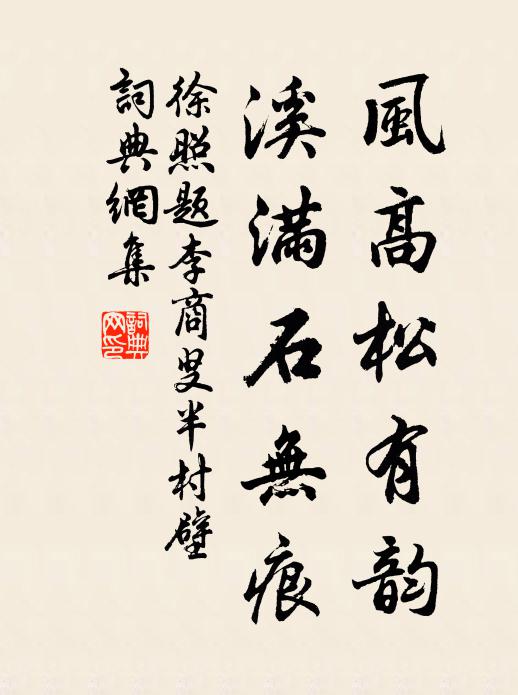 風高松有韵
溪滿石無痕
徐照题李商叟半村壁
詞典網集
詞典網印